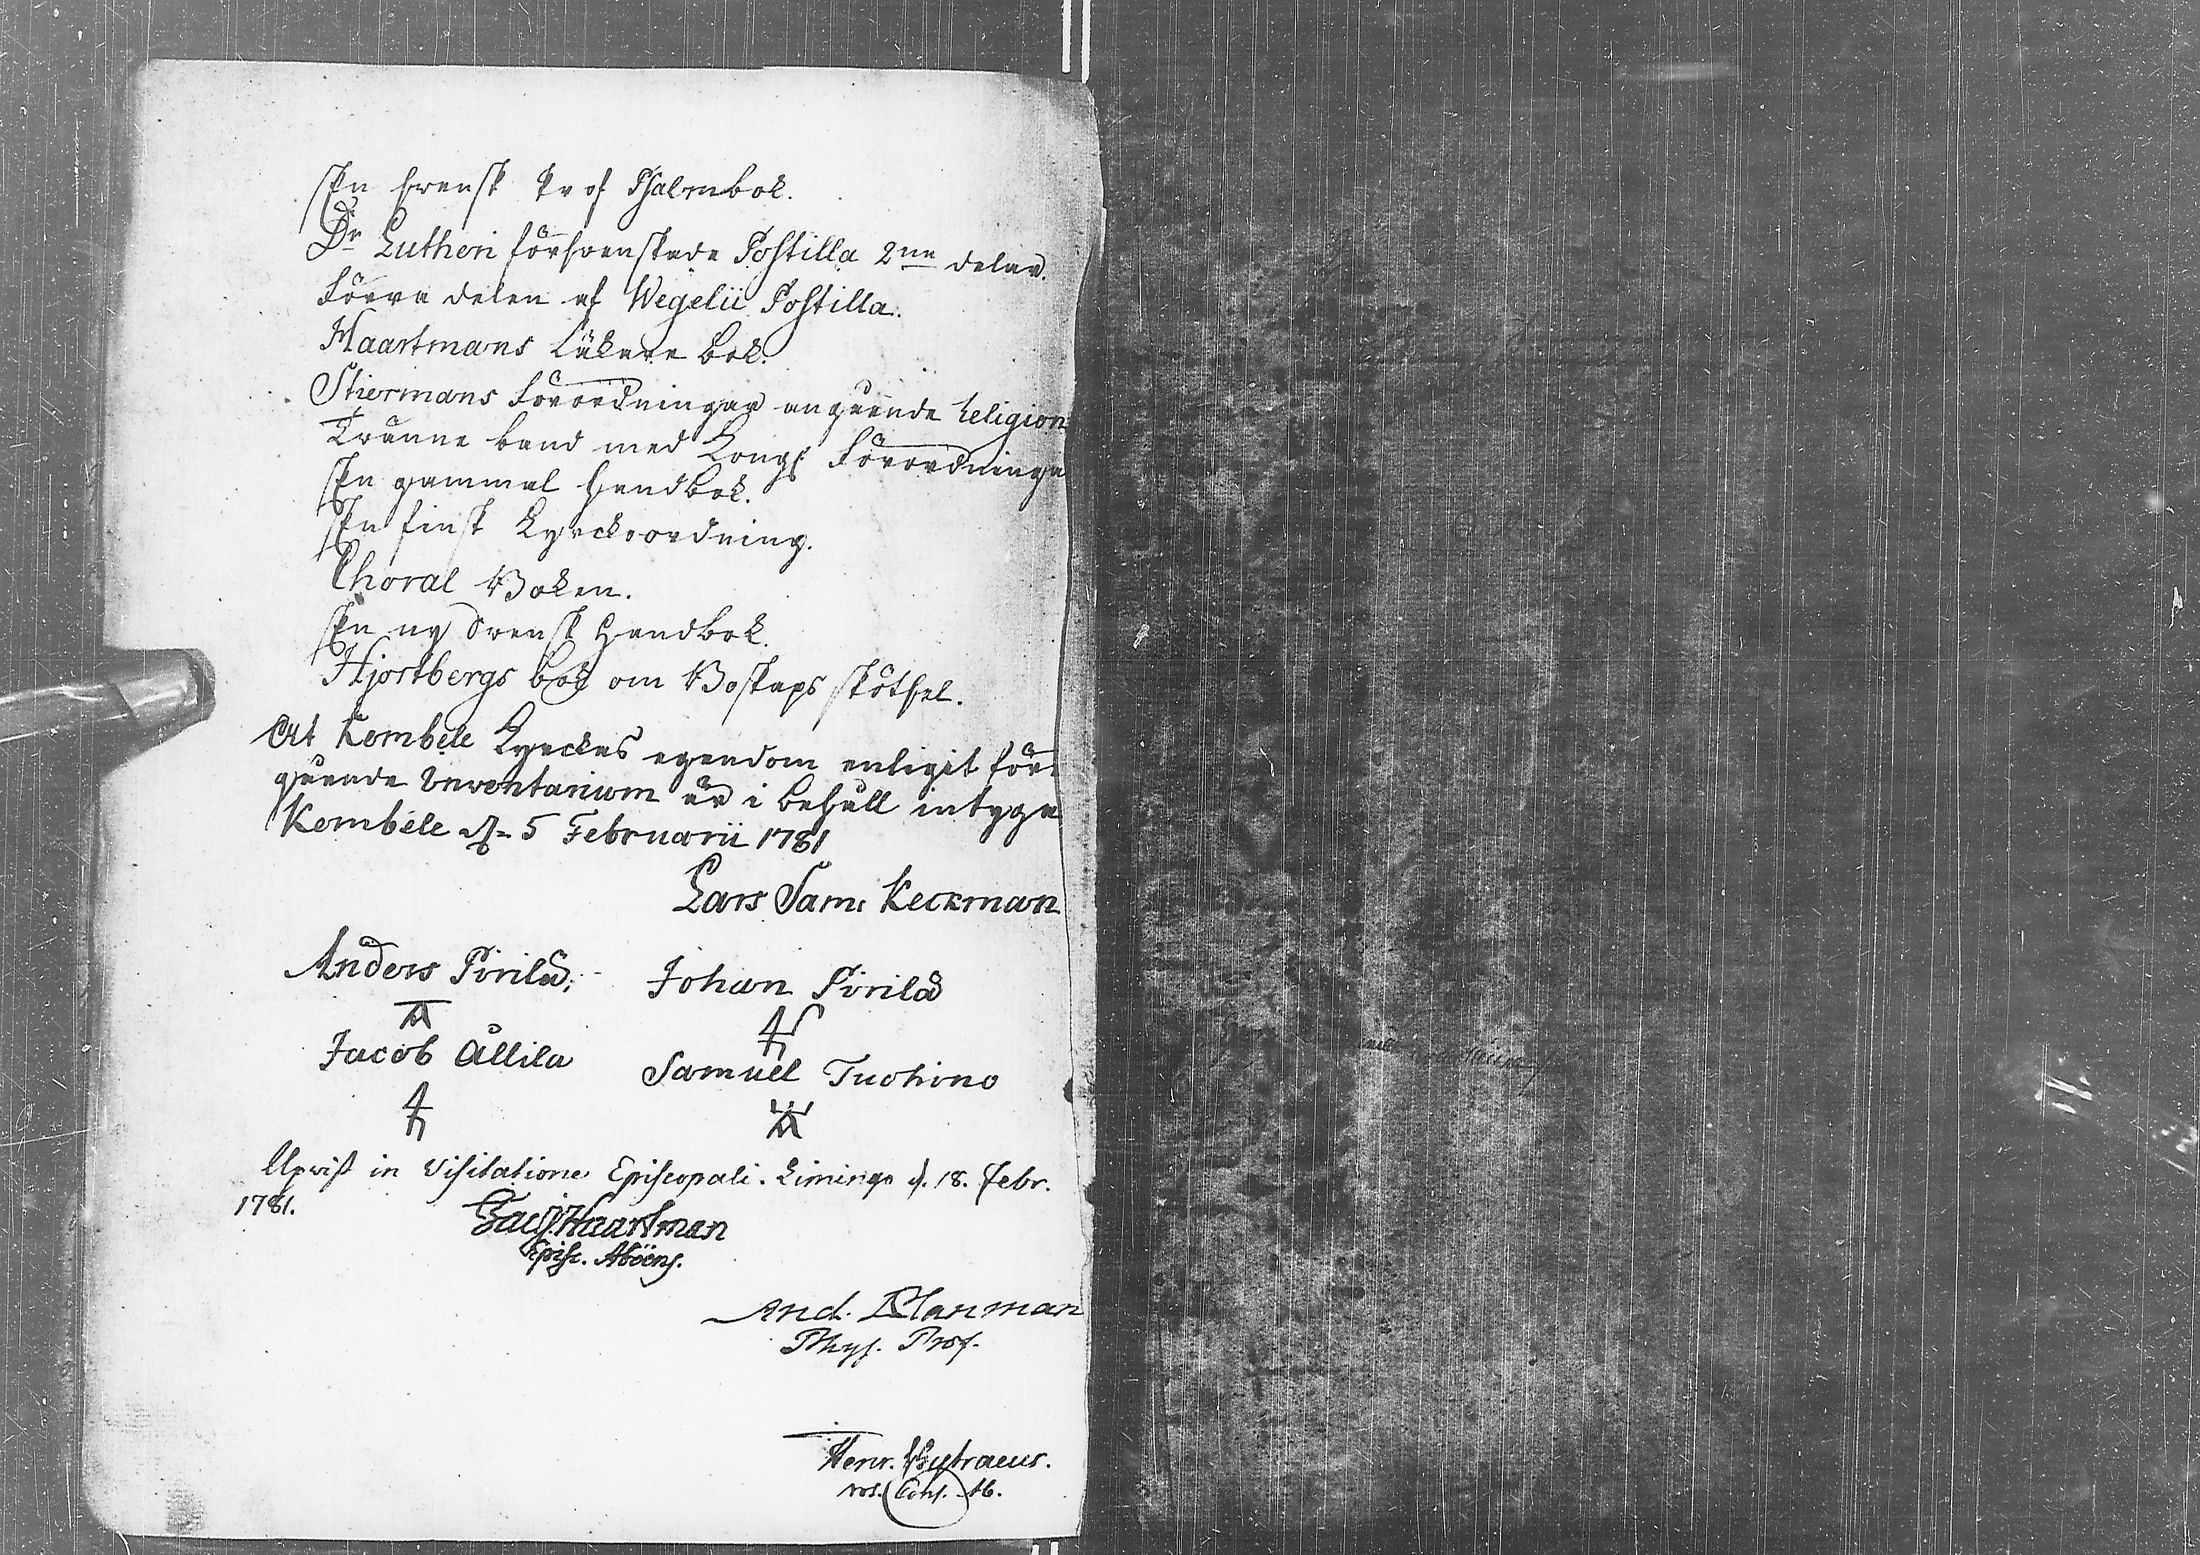 En svensk Prof Psalmbok.
Dr Lutheri försvenskade Postilla 2ne delar.
Förra delen af Wegelii Postilla.
Haartmans Läkare bok.
Stiermans Förordningar angående Religion
Tvänne band med Kongl Förordninga
En gammal Handbok.
En finsk Kyrckoordning.
Choral Boken.
En ny Svensk Handbok.
Hjortbergs bok om Boskaps skötsel.
At Kembele Kyrckas egendom enligit före
gående Inventarium är i behåll intyga
Kembele d. 5 Februarii 1781
Lars Sam: Keckman
Anders Pirilä: Johan Pirilä
Jacob Ållila Samuel Tuohino
Upvist in Visitatione Episcopali. Limingo d. 18. Febr.
1781.
Jac. Haartman
Episc. Aboens.
And. Planman
Phys. Prof.
Henr. Chytraeus.
Not. Cons. Ab.